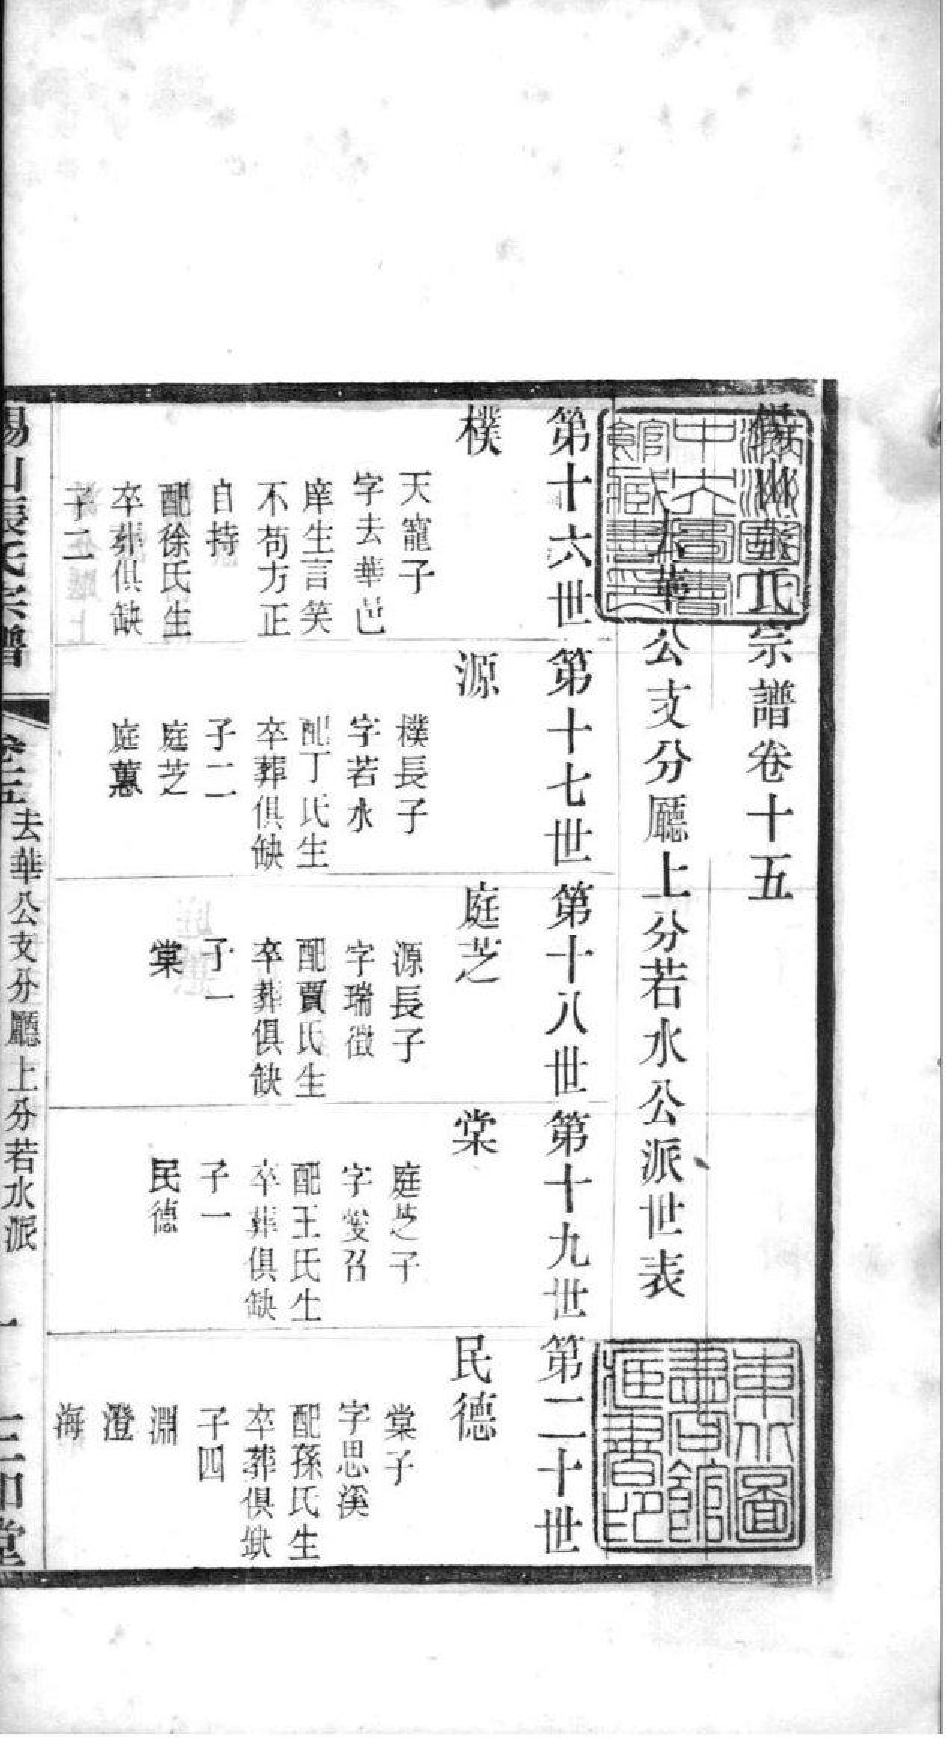 氏宗譜卷十五
去華公支分廳上分若水公派世表
第十六世
樸
天寵子
字去華邑
庠生言笑
不苟方正
自持
配徐氏生
卒葬俱缺
子二
第十七世
源
樸長子
字若水
配丁氏生
卒葬俱缺
子二
庭芝
庭蕙
第十八世
庭芝
源長子
字瑞徵
配賈氏生
卒葬俱缺
子一
棠
第十九世
棠
庭芝子
字愛召
配王氏生
卒葬俱缺
子一
民德
第二十世
民德
棠子
字思溪
配孫氏生
卒葬俱缺
子四
淵
澄
海
錫山張氏宗譜
卷十五
去華公支分廳上分若水派
一
三和堂
東北圖書館藏書印